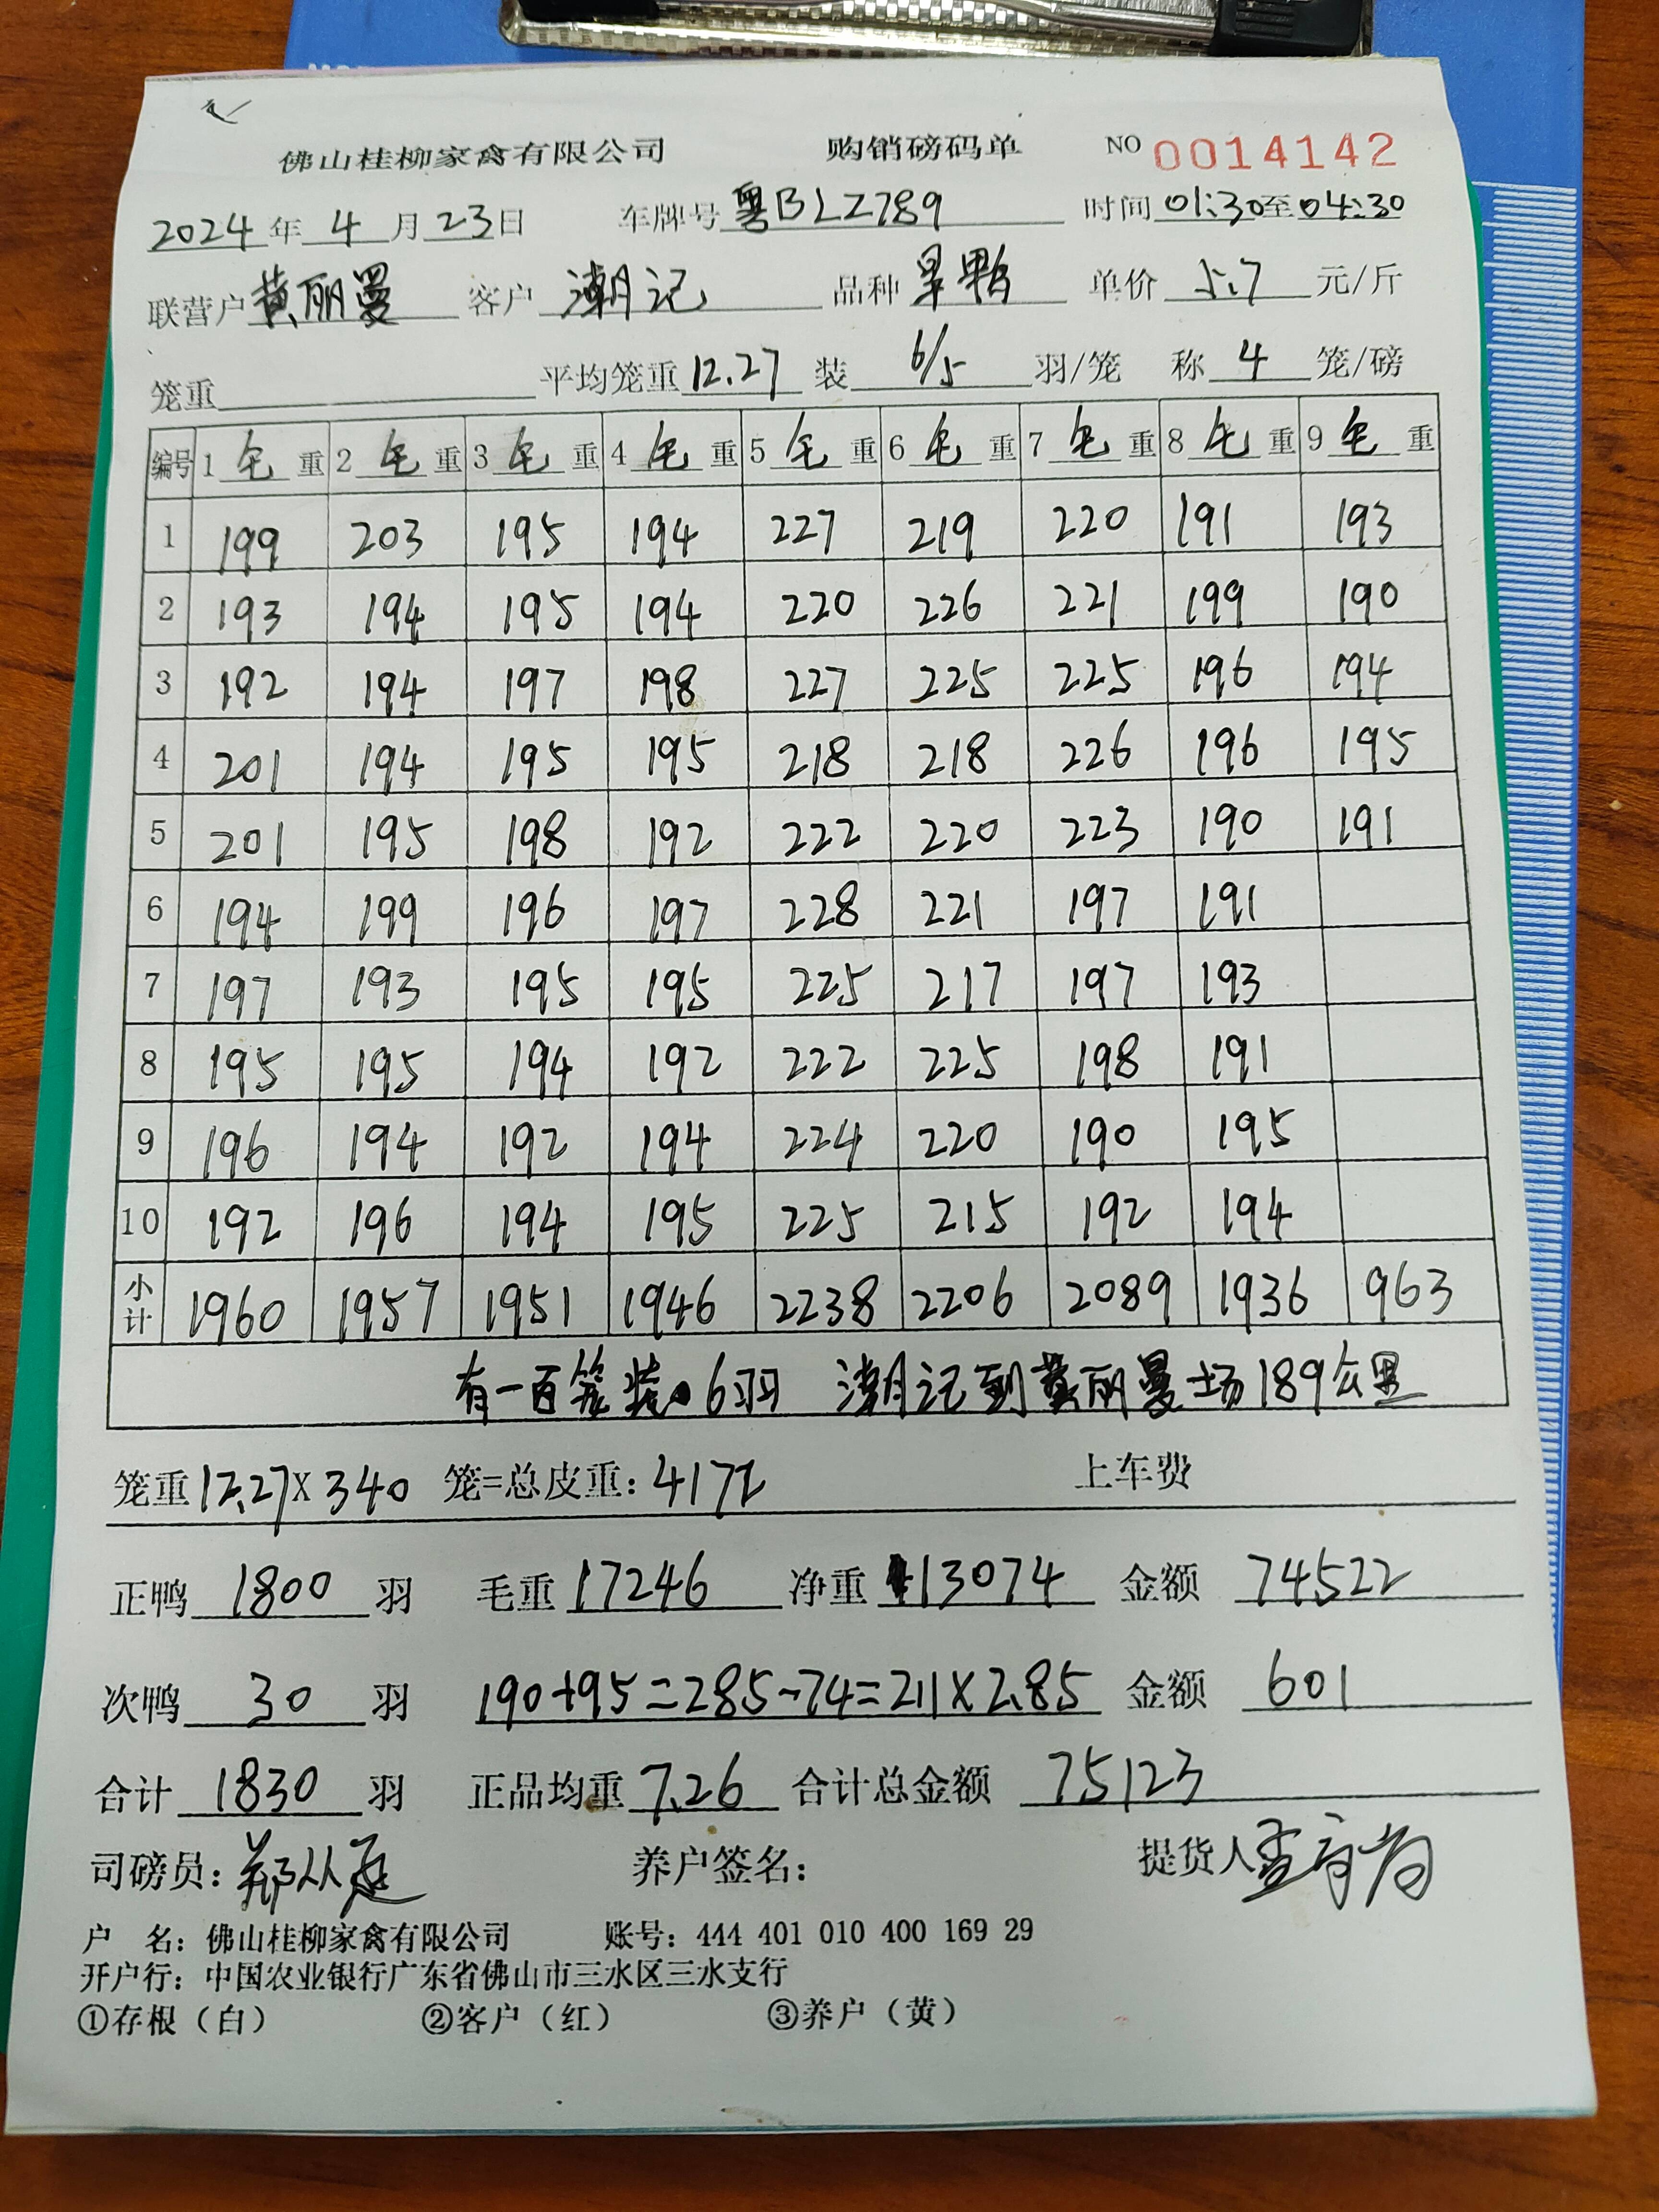 佛山桂柳家禽有限公司 购销磅码单 NO 0014142
2024年4月23日 车牌号粤BLZ789 时间01:30至04:30
联营户黄丽曼 客户潮记 品种旱鸭 单价5.7元/斤
笼重 平均笼重12.27 装6/5羽/笼 称4笼/磅
编号 1毛重 2毛重 3毛重 4毛重 5毛重 6毛重 7毛重 8毛重 9毛重
1 199 203 195 194 227 219 220 191 193
2 193 194 195 194 220 226 221 199 190
3 192 194 197 198 227 225 225 196 194
4 201 194 195 195 218 218 226 196 195
5 201 195 198 192 222 220 223 190 191
6 194 199 196 197 228 221 197 191
7 197 193 195 195 225 217 197 193
8 195 195 194 192 222 225 198 191
9 196 194 192 194 224 220 190 195
10 192 196 194 195 225 215 192 194
小计 1960 1957 1951 1946 2238 2206 2089 1936 963
有一百笼装6羽 潮记到黄丽曼场189公里
笼重12.27X340 笼=总皮重:4172 上车费
正鸭1800羽 毛重17246 净重13074 金额74522
次鸭30羽 190+95=285-74=211X2.85 金额601
合计1830羽 正品均重7.26 合计总金额75123
司磅员:郑从延 养户签名: 提货人
户 名:佛山桂柳家禽有限公司 账号:444 401 010 400 169 29
开户行:中国农业银行广东省佛山市三水区三水支行
①存根（白） ②客户（红） ③养户（黄）